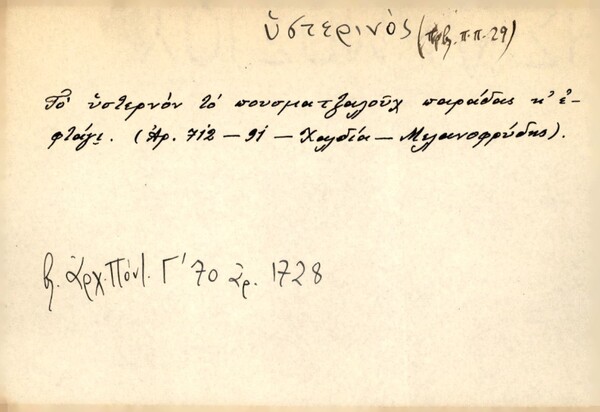 ὑστερινὸς (πρβ. π.π. 29)
Τὸ ὑστερνὸν τὸ πουσματζαλοὺχ παράδας κ' ἐ-
φτάγῃ. (Ἀρ. 712 – 91 – Χαλδία – Μελανοφρύδης).
βλ. Ἀρχ. Πόντ. Γ' 70 ἀρ. 1728